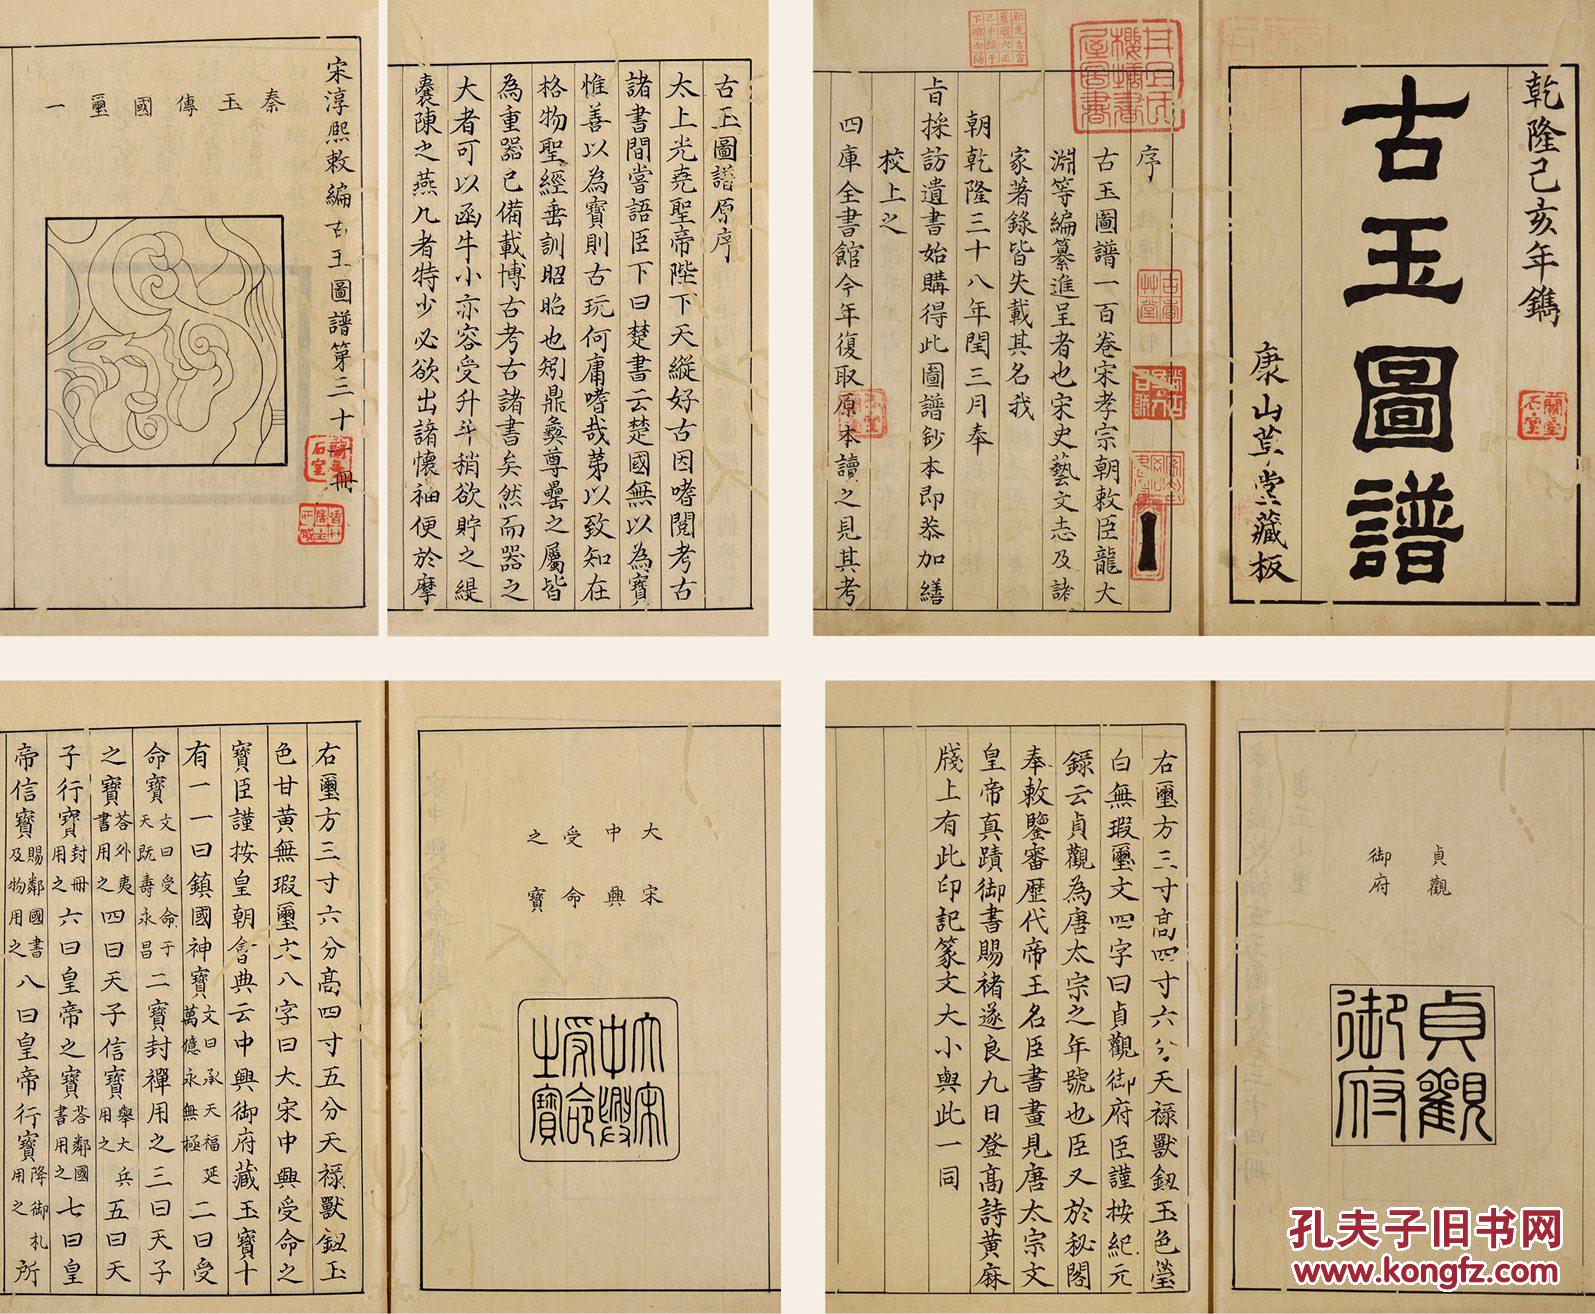 乾隆己亥年鐫
古玉圖譜
康山草堂藏板
序
古玉圖譜一百卷宋孝宗朝敕臣龍大
淵等編纂進呈者也宋史藝文志及諸
家著錄皆失載其名我
朝乾隆三十八年閏三月奉
旨採訪遺書始購得此圖譜鈔本即恭加繕
校上之
四庫全書館今年復取原本讀之見其考
古玉圖譜原序
太上光堯聖帝陛下天縱好古因嗜閱考古
諸書間嘗語臣下曰楚書云楚國無以為寶
惟善以為寶則古玩何庸嗜哉苐以致知在
格物聖經垂訓昭昭也矧鼎彝尊罍之屬皆
為重器已備載博古考古諸書矣然而器之
大者可以函牛小亦容受升斗稍欲貯之緹
囊陳之燕几者特少必欲出諸懷袖便於摩
宋淳熙敕編古玉圖譜第三十一冊
秦玉傳國璽一
蘭臺石室
貞觀
御府
貞觀御府
右璽方三寸高四寸六分天祿獸鈕玉色瑩
白無瑕璽文四字曰貞觀御府臣謹按紀元
錄云貞觀為唐太宗之年號也臣又於秘閣
奉敕鑒審歷代帝王名臣書畫見唐太宗文
皇帝真蹟御書賜褚遂良九日登高詩黃麻
牋上有此印記篆文大小與此一同
大宋
中興
受命
之寶
大宋中興受命之寶
右璽方三寸六分高四寸五分天祿獸鈕玉
色甘黃無瑕璽文八字曰大宋中興受命之
寶臣謹按皇朝會典云中興御府藏玉寶十
有一一曰鎮國神寶文曰承天福延萬億永無極二曰受
命寶文曰受命于天既壽永昌二寶封禪用之三曰天子
之寶荅外夷書用之四曰天子信寶舉大兵用之五曰天
子行寶封冊用之六曰皇帝之寶荅鄰國書用之七曰皇
帝信寶賜鄰國書及物用之八曰皇帝行寶降御札用之所
孔夫子旧书网
www.kongfz.com